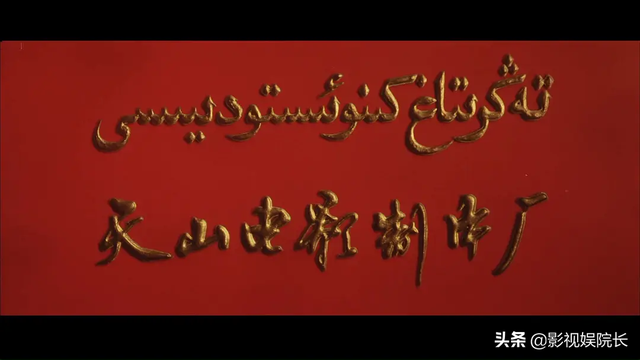 تەڭرىتاغ كىنوئىستودىيىسى
天山电影制片厂
头条 @影视娱院长